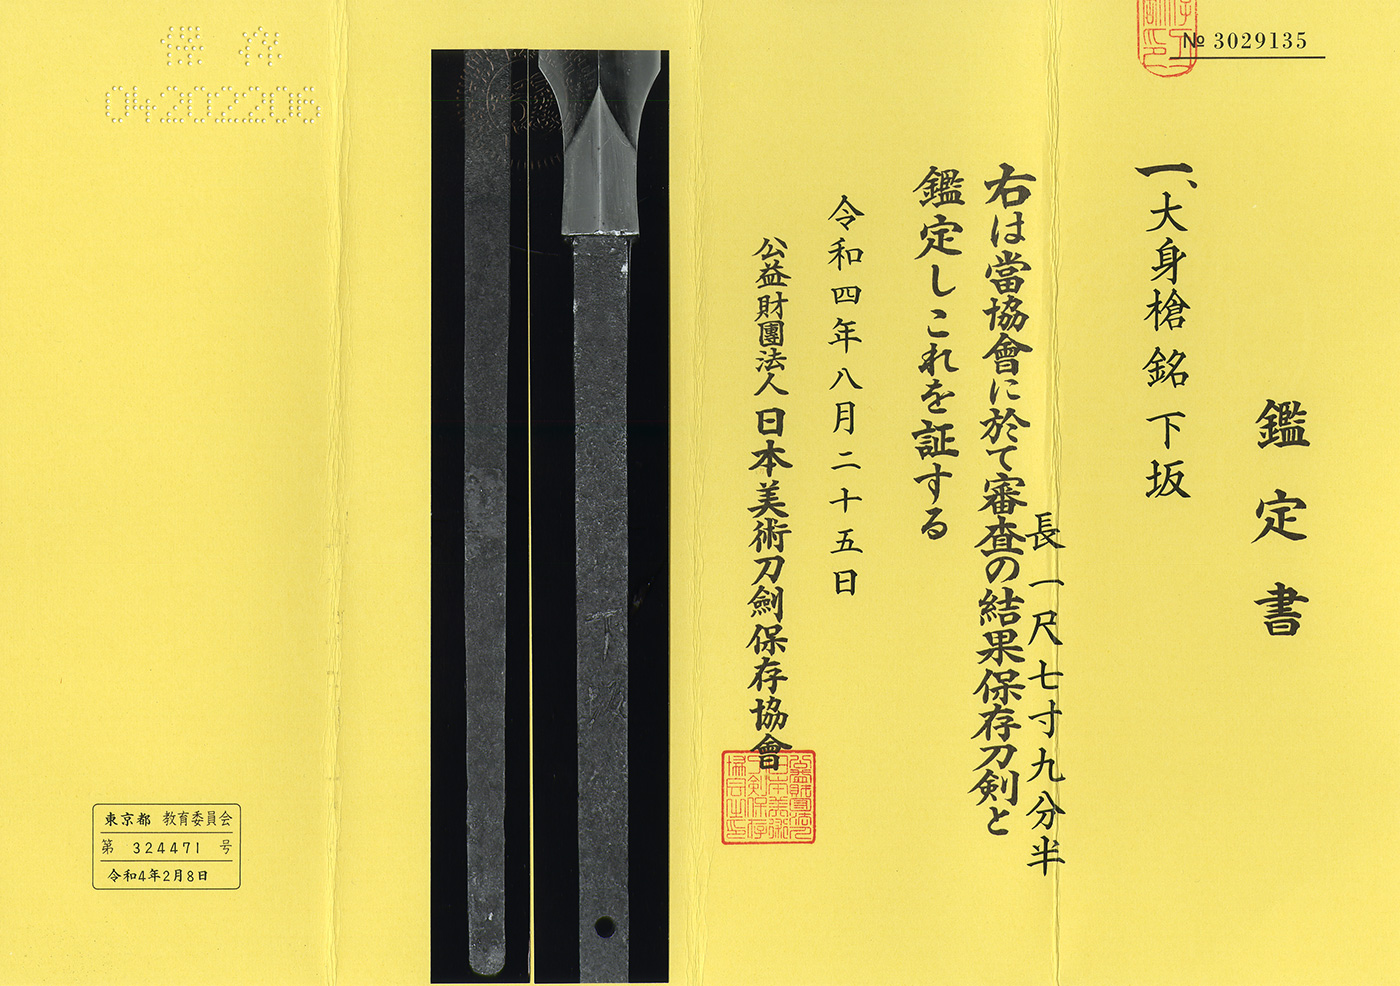 № 3029135
鑑定書
一、大身槍 銘 下坂
長一尺七寸九分半
右は當協會に於て審査の結果保存刀剣と
鑑定しこれを証する
令和四年八月二十五日
公益財團法人 日本美術刀劍保存協會
下坂
保存
04202206
東京都 教育委員会
第 324471 号
令和4年2月8日